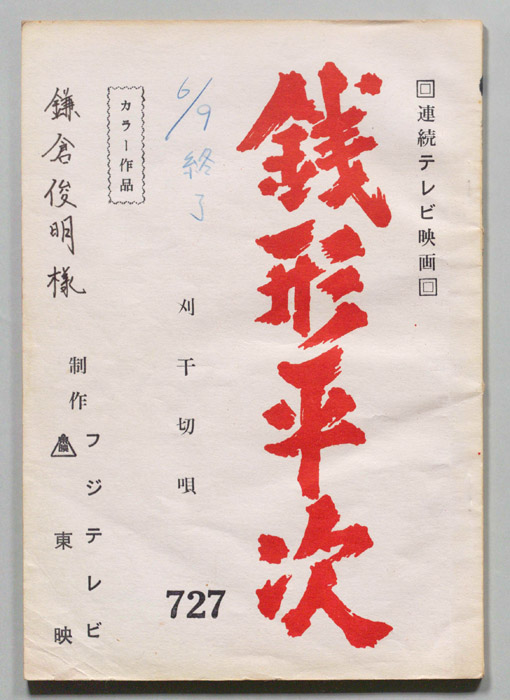 回連続テレビ映画回
銭形平次
刈干切唄
727
6/9 終了
カラー作品
鎌倉俊明様
制作
フジテレビ
東映